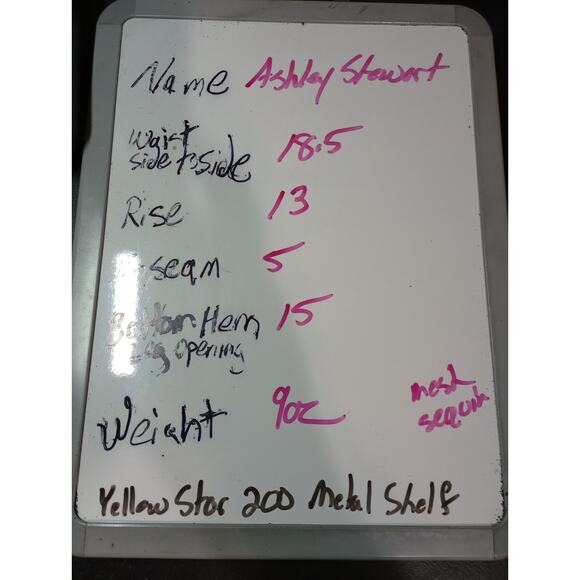 Name Ashley Stewart
Waist
side to side 18.5
Rise 13
Inseam 5
Bottom Hem 15
Leg opening
Weight 9oz
mesh
sequin
Yellow Star 200 Metal Shelf